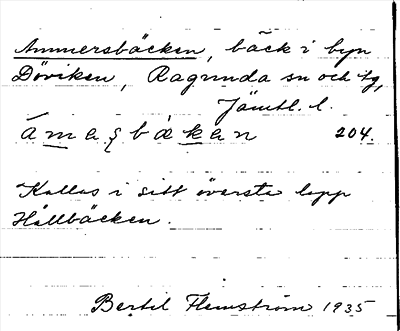 Ammersbäcken, bäck i byn
Döviken, Ragunda sn och tg,
Jämtl. l.
ámaʂbækan 204.
Kallas i sitt översta lopp
Hällbäcken.
Bertil Flemström 1935